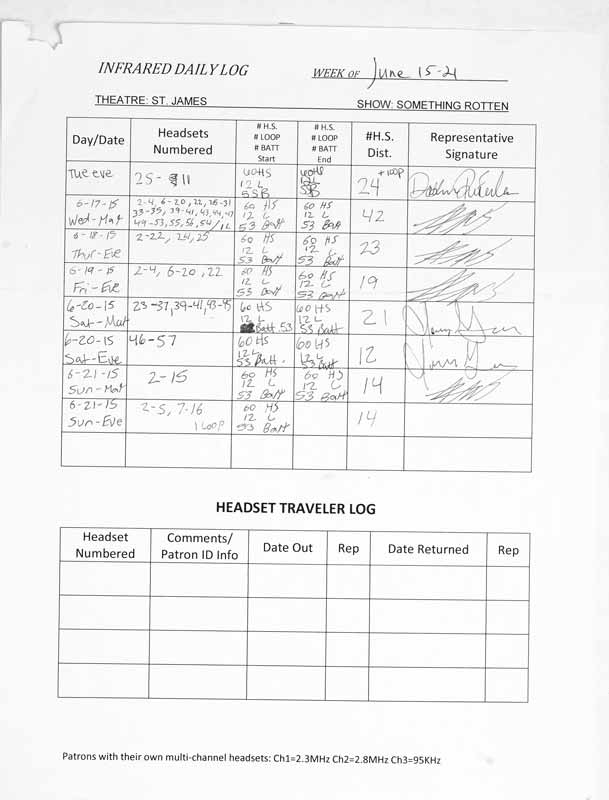 INFRARED DAILY LOG
WEEK OF June 15-21
THEATRE: ST. JAMES
SHOW: SOMETHING ROTTEN
Day/Date
Headsets Numbered
# H.S. # LOOP # BATT Start
# H.S. # LOOP # BATT End
#H.S. Dist.
Representative Signature
Tue eve
25-
11
12 L
24 + LOOP
6-17-15
Wed-Mat
2-4, 6-20, 22, 26-31
33-35, 39-41, 43, 44, 47
49-53, 55, 56, 54/12
60 HS
12 L
53 Batt
60 HS
12 L
53 Batt
42
6-18-15
Thur-Eve
2-22, 24, 25
60 HS
12 L
53 Batt
60 HS
12 L
53 Batt
23
6-19-15
Fri-Eve
2-4, 6-20, 22
60 HS
12 L
53 Batt
60 HS
12 L
53 Batt
19
6-20-15
Sat-Mat
23-37, 39-41, 43-45
60 HS
12 L
Batt 53
60 HS
12 L
53 Batt
21
6-20-15
Sat-Eve
46-57
60 HS
12 L
53 Batt.
60 HS
12 L
53 Batt
12
6-21-15
Sun-Mat
2-15
60 HS
12 L
53 Batt
60 HS
12 L
53 Batt
14
6-21-15
Sun-Eve
2-5, 7-16
1 LOOP
60 HS
12 L
53 Batt
14
HEADSET TRAVELER LOG
Headset Numbered
Comments/ Patron ID Info
Date Out
Rep
Date Returned
Rep
Patrons with their own multi-channel headsets: Ch1=2.3MHz Ch2=2.8MHz Ch3=95KHz